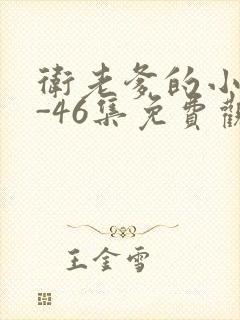 衛老爹的小
-46集免費觀
王金雪